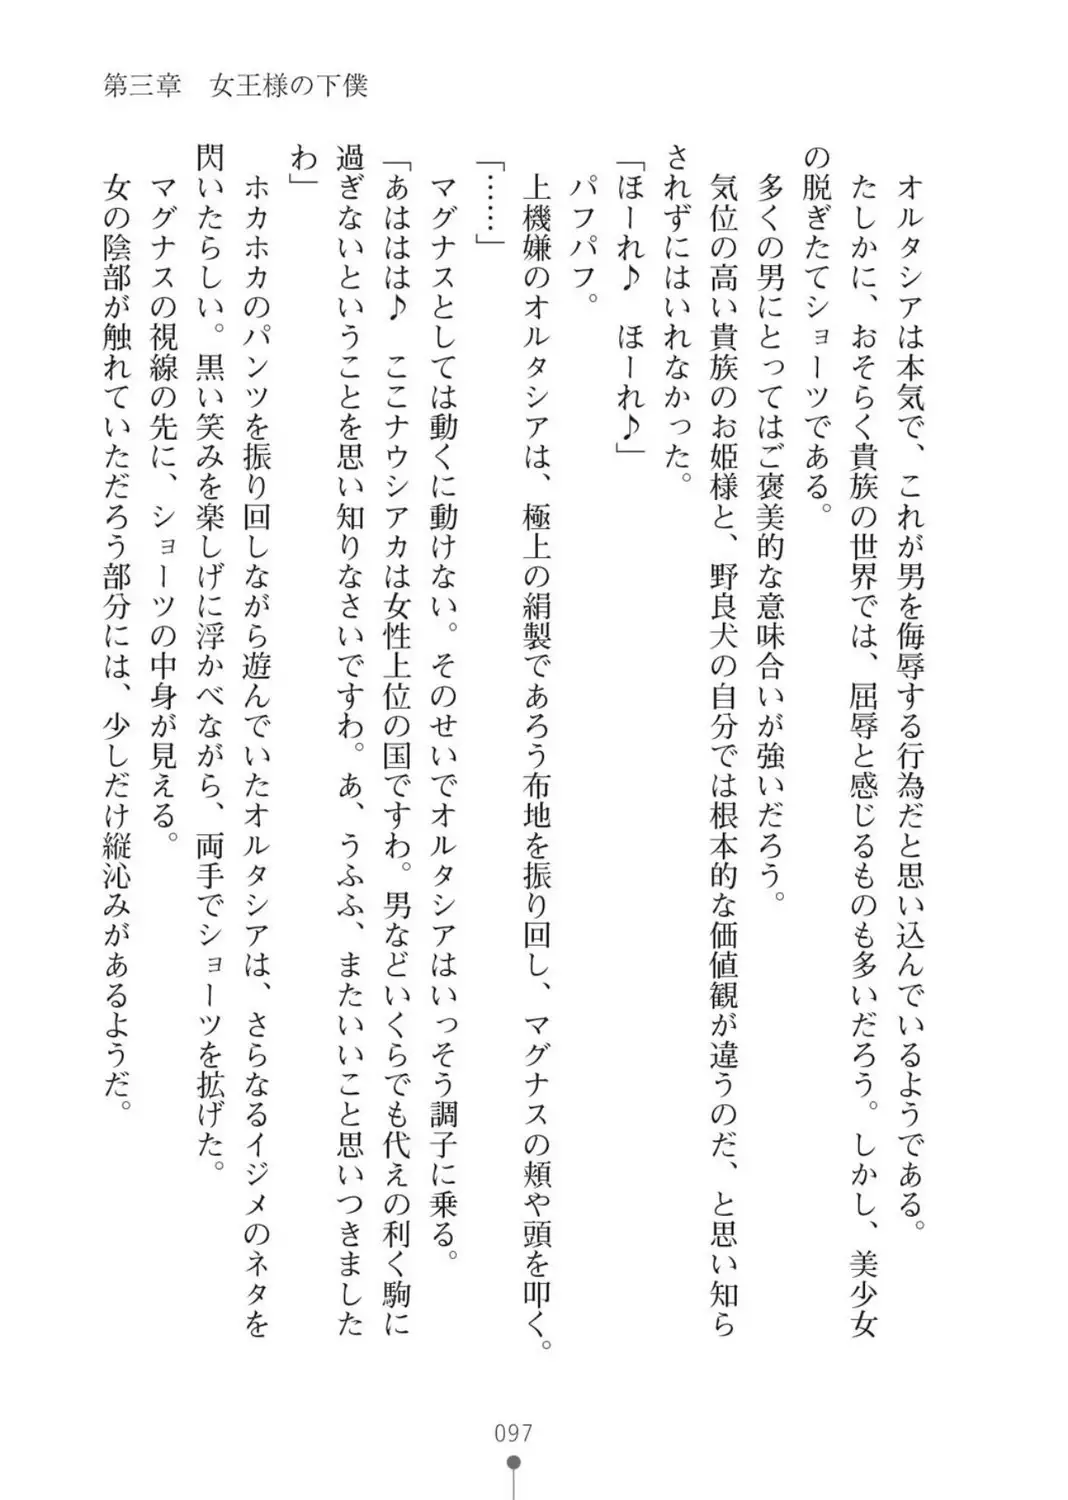 第三章　女王様の下僕
オルタシアは本気で、これが男を侮辱する行為だと思い込んでいるようである。
たしかに、おそらく貴族の世界では、屈辱と感じるものも多いだろう。しかし、美少女
の脱ぎたてショーツである。
多くの男にとってはご褒美的な意味合いが強いだろう。
気位の高い貴族のお姫様と、野良犬の自分では根本的な価値観が違うのだ、と思い知ら
されずにはいれなかった。
「ほーれ♪　ほーれ♪」
パフパフ。
上機嫌のオルタシアは、極上の絹製であろう布地を振り回し、マグナスの頬や頭を叩く。
「……」
マグナスとしては動くに動けない。そのせいでオルタシアはいっそう調子に乗る。
「あははは♪　ここナウシアカは女性上位の国ですわ。男などいくらでも代えの利く駒に
過ぎないということを思い知りなさいですわ。あ、うふふ、またいいこと思いつきました
わ」
ホカホカのパンツを振り回しながら遊んでいたオルタシアは、さらなるイジメのネタを
閃いたらしい。黒い笑みを楽しげに浮かべながら、両手でショーツを拡げた。
マグナスの視線の先に、ショーツの中身が見える。
女の陰部が触れていただろう部分には、少しだけ縦沁みがあるようだ。
097